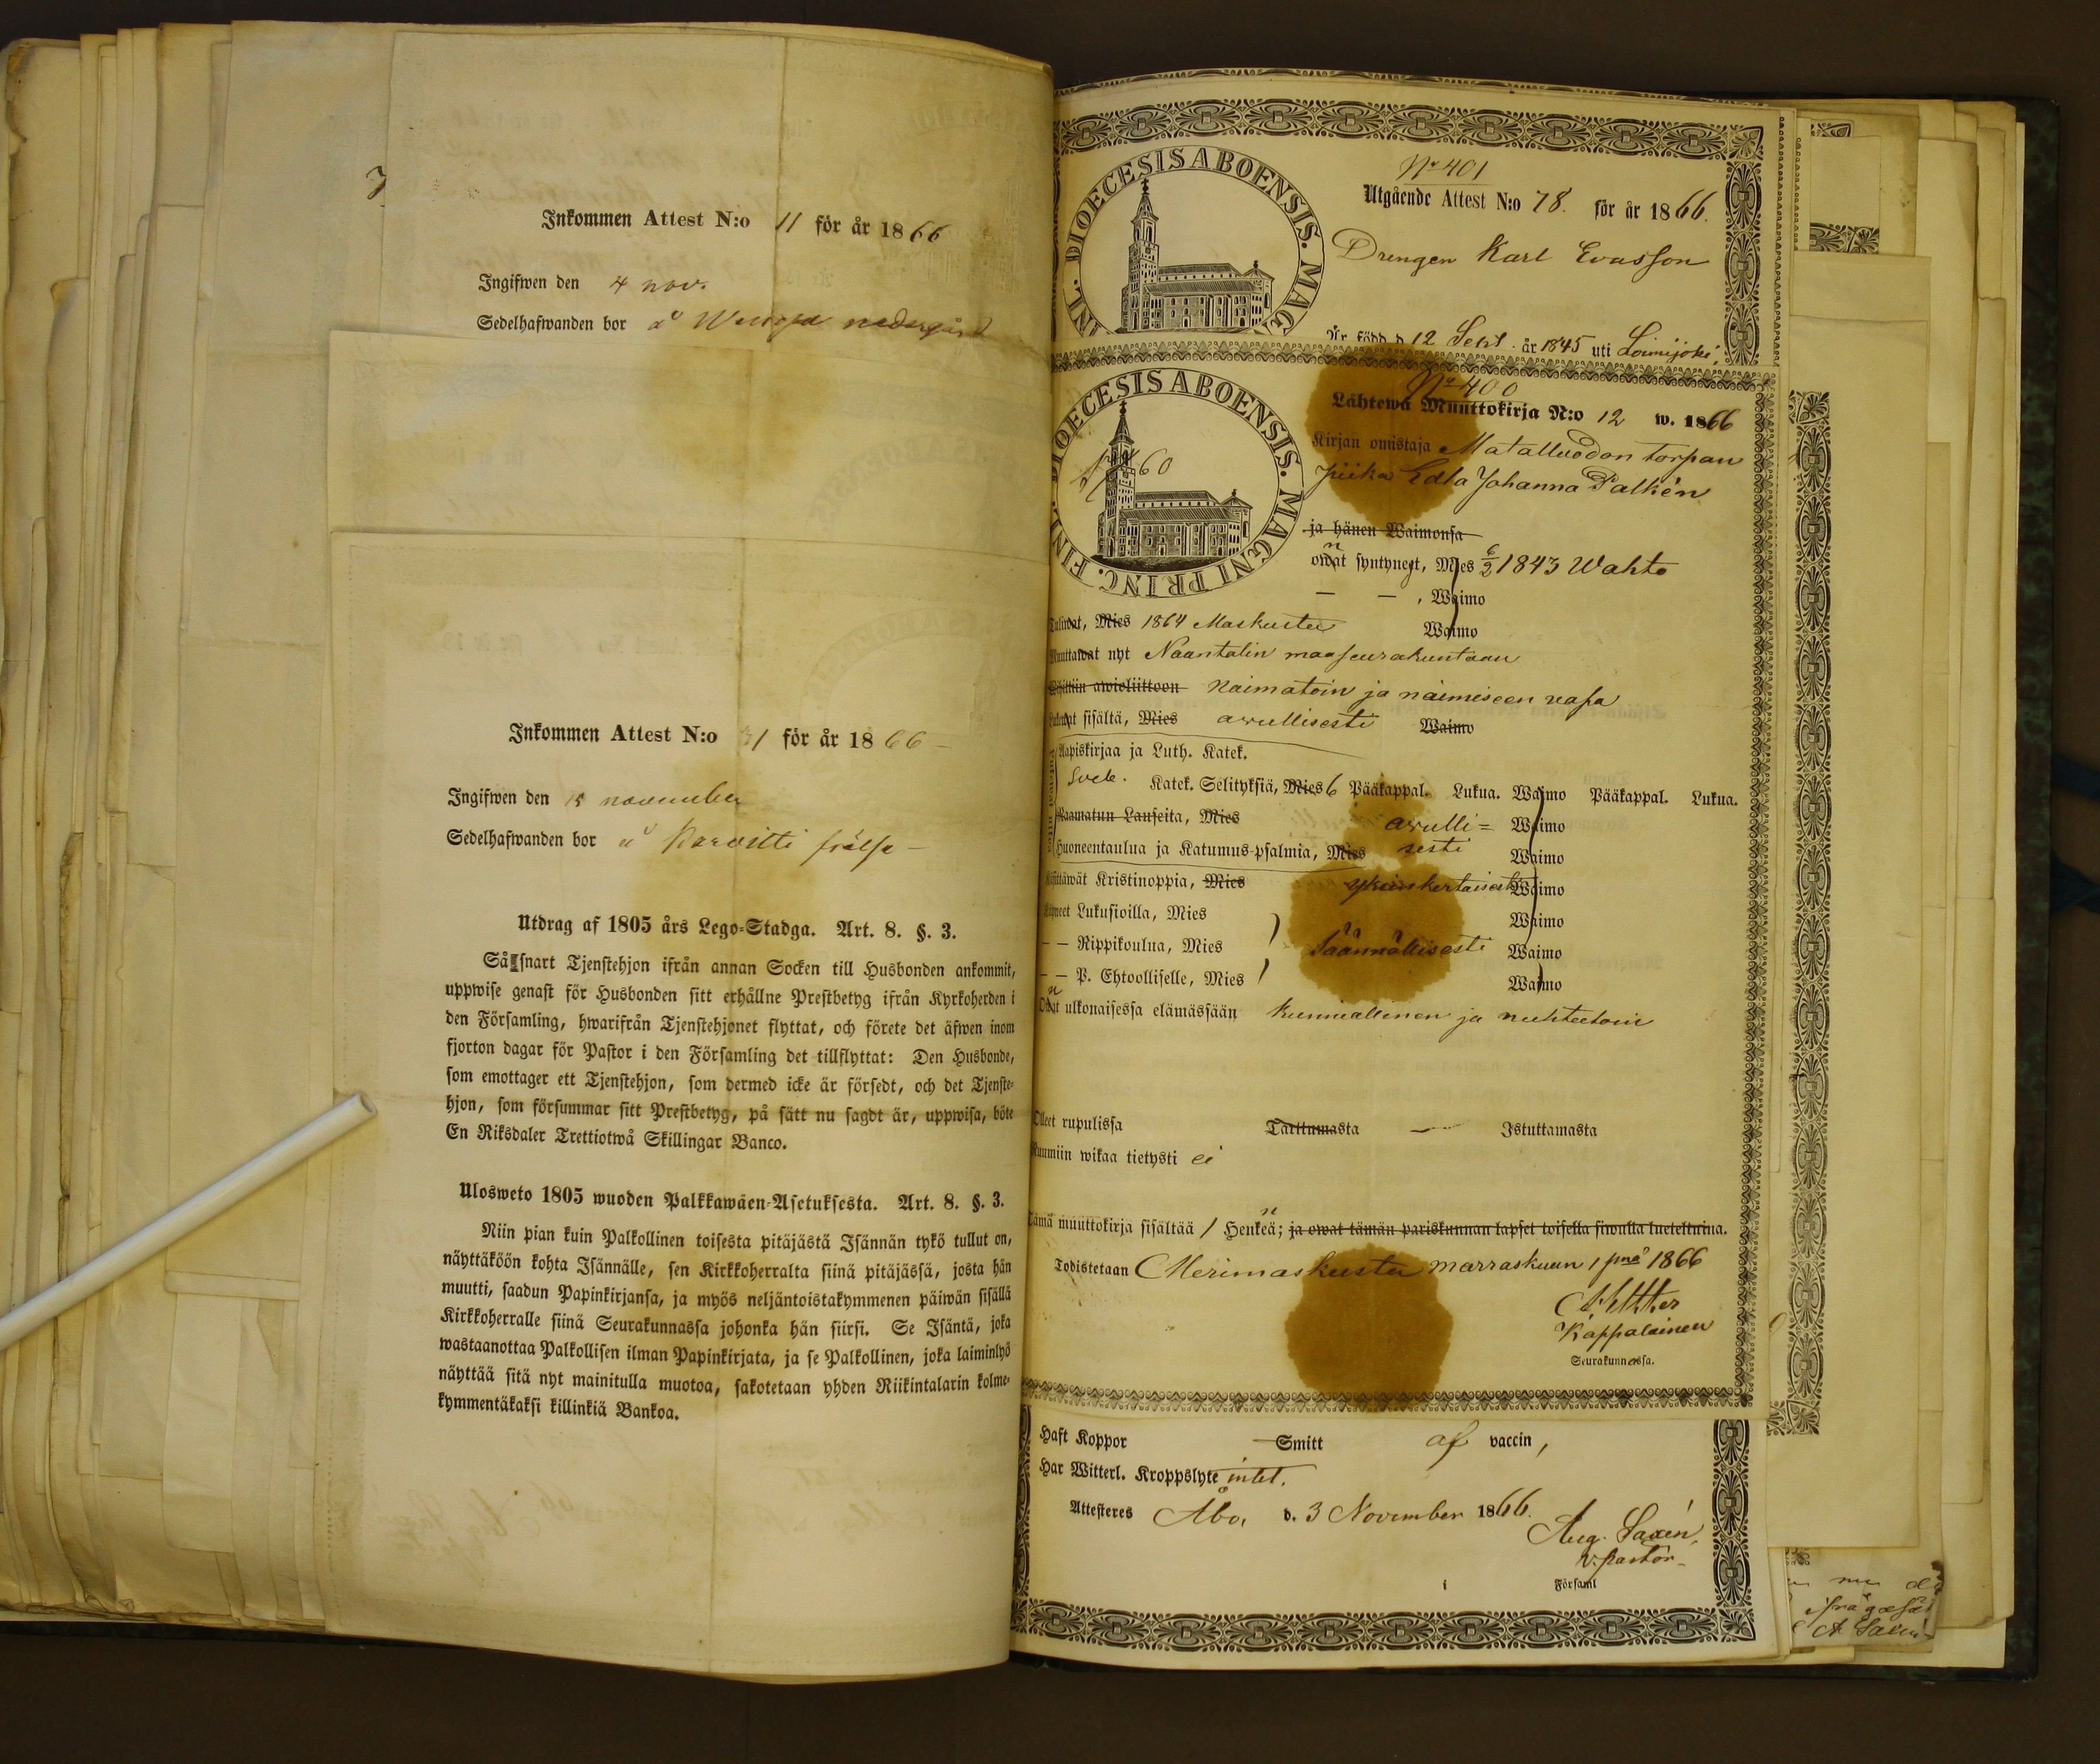 Inkommen Attest N:o 11 för år 1866
Ingifwen den 4 nov.
Sedelhafwanden bor å nedergård
Inkommen Attest N:o 31 för år 1866
Ingifwen den 15 november
Sedelhafwanden bor å Karvitti frälse
Utdrag af 1805 års Lego-Stadga. Art. 8. §. 3.
Så snart Tjenstehjon ifrån annan Socken till Husbonden ankommit,
uppwise genast för Husbonden sitt erhållne Prestbetyg ifrån Kyrkoherden i
den Församling, hwarifrån Tjenstehjonet flyttat, och förete det äfwen inom
fjorton dagar för Pastor i den Församling det tillflyttat: Den Husbonde,
som emottager ett Tjenstehjon, som dermed icke är försedt, och det Tjenste-
hjon, som försummar sitt Prestbetyg, på sätt nu sagdt är, uppwisa, böte
En Riksdaler Trettiotwå Skillingar Banco.
Ulosweto 1805 wuoden Palkkawäen-Asetuksesta. Art. 8. §. 3.
Niin pian kuin Palkollinen toisesta pitäjästä Isännän tykö tullut on,
näyttäköön kohta Isännälle, sen Kirkkoherralta siinä pitäjässä, josta hän
muutti, saadun Papinkirjansa, ja myös neljäntoistakymmenen päiwän sisällä
Kirkkoherralle siinä Seurakunnassa johonka hän siirsi. Se Isäntä, joka
wastaanottaa Palkollisen ilman Papinkirjata, ja se Palkollinen, joka laiminlyö
näyttää sitä nyt mainitulla muotoa, sakotetaan yhden Riikintalarin kolme-
kymmentäkaksi killinkiä Bankoa.
DIOECESIS ABOENSIS. MAG
No 401
Utgående Attest N:o 78. för år 1866.
Drengen Karl Evasson
Är född d 12 Sept. år 1845 uti Loimijoki
DIOECESIS ABOENSIS. MAGNI PRINC. FINL.
No 400
Lähtewä Muuttokirja N:o 12 w. 1866
60
Kirjan omistaja Matalluodon torpan
piika Edla Johanna Palkén
ja hänen Waimonsa
owat syntynet, Mies 6/2 1843 Wahto
— — , Waimo
Tuliwat, Mies 1864 Maskusta Waimo
Muuttawat nyt Naantalin maaseurakuntaan
Wihittiin awioliittoon Naimatoin ja naimiseen vapa
Lukewat sisältä, Mies avullisesti Waimo
Aapiskirjaa ja Luth. Katek.
Sveb. Katek. Selityksiä, Mies 6 Pääkappal. Lukua. Waimo Pääkappal. Lukua.
Raamatun Lauseita, Mies avulli= Waimo
Huoneentaulua ja Katumus-psalmia, Mies sesti Waimo
Käsittäwät Kristinoppia, Mies yksinkertaisesti Waimo
Käyneet Lukusioilla, Mies Waimo
— — Rippikoulua, Mies Säännöllisesti Waimo
— — P. Ehtoolliselle, Mies Waimo
Owat ulkonaisessa elämässään kunniallinen ja nuhteetoin
Olleet rupulissa Tarttumasta — Istuttamasta
Ruumiin wikaa tietysti ei
Tämä muuttokirja sisältää 1 Henkeä; ja owat tämän pariskunnan lapset toisella siwulla lueteltuina.
Todistetaan Merimaskusta marraskuun 1 pnä 1866
Kappalainen
Seurakunnassa.
Haft Koppor Smitt af vaccin,
Har Witterl. Kroppslyte intet.
Attesteres Åbo, d. 3 November 1866.
Aug. Saxén,
v. pastor
i Församl
A Saxén